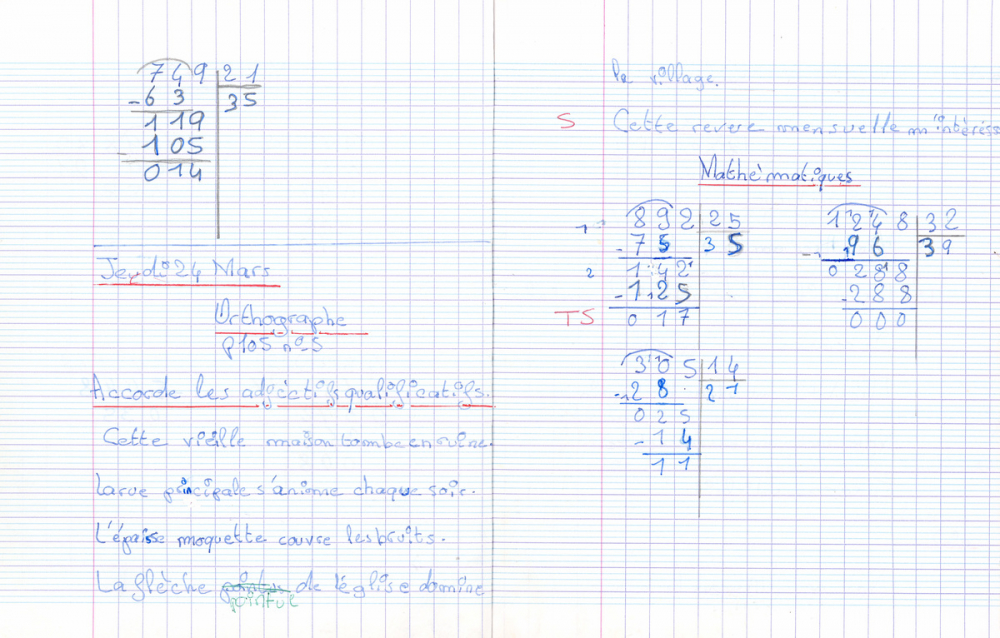 749 21
-63 35
119
-105
014
Jeudi 24 Mars
Orthographe
p105 n°5
Accorde les adjectifs qualificatifs.
Cette vieille maison tombe en ruine.
La rue principale s'anime chaque soir.
L'épaisse moquette couvre les bruits.
La flèche pointue de l'église domine
le village.
S Cette revere mensuelle m'intéress
Mathématiques
1 892 25
-75 35
2 142
-125
TS 017
1248 32
-96 39
0288
-288
000
305 14
-28 21
025
-14
11